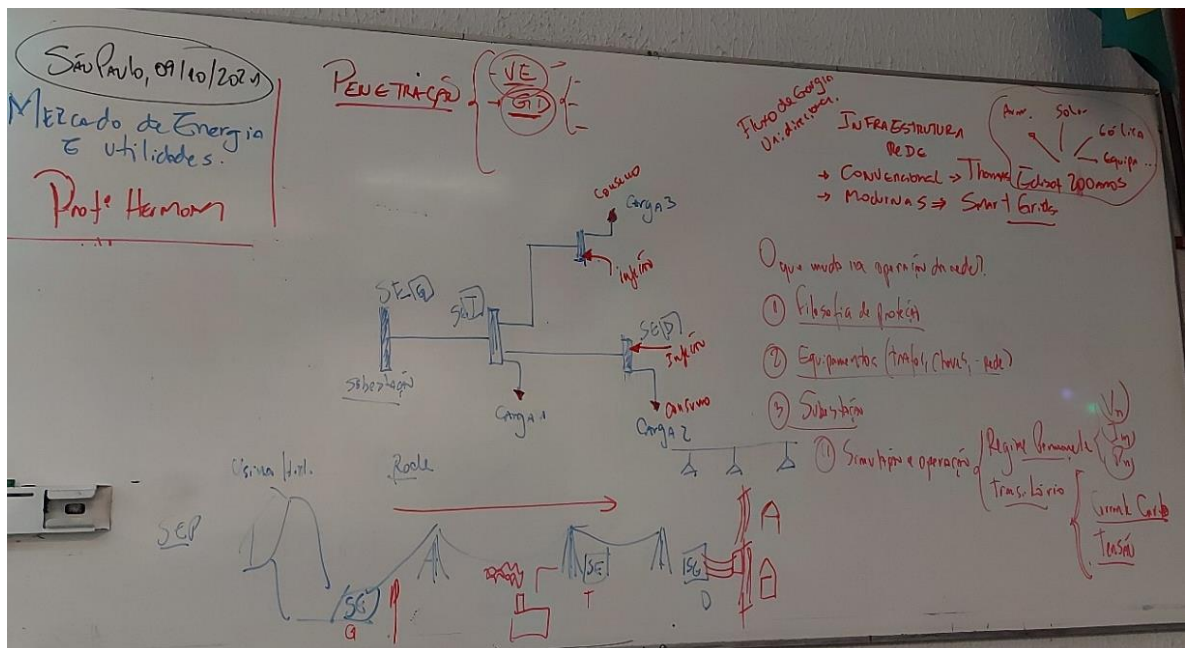 São Paulo, 09/10/2021
Mercado de Energia
E utilidades.
Profº Hermom
PENETRAÇÃO
- VE →
→ GD
Fluxo de Energia
Unidirecional.
INFRAESTRUTURA
REDE
→ CONVENCIONAL → Thomas Edison 200 anos
→ MODERNAS ⇒ Smart Grids
Arm.
Solar
Eólica
Equip...
Consumo
Carga 3
injeção
SE G
SE T
SE D
Injeção
subestação
Carga 1
Consumo
Carga 2
O que muda na operação da rede?
① Filosofia de proteção
② Equipamentos (trafos, chaves, - rede)
③ Subestação
① Simulação e operação
Regime Permanente
Transitório
Tensão
Usina Hid.
Rede
SEP
SE
G
SE
T
SE
D